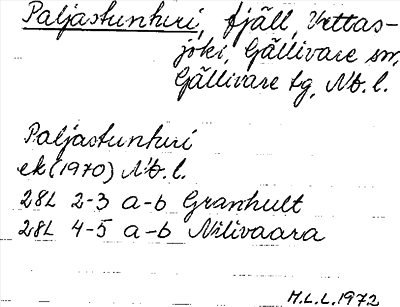 Paljastunturi, fjäll, Vettas-
joki, Gällivare sn,
Gällivare tg, Nb. l.
Paljastunturi
ek (1970) Nb. l.
28L 2-3 a-b Granhult
28L 4-5 a-b Nilivaara
H.L.L. 1972